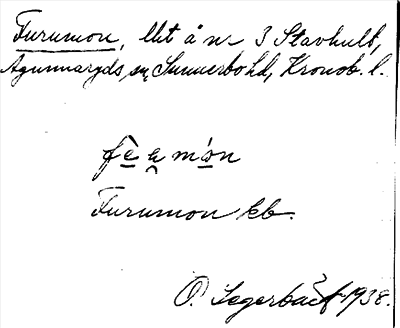 Furumon, lht å nr 3 Stavhult,
Agunnaryds sn, Sunnerbo hd, Kronob. l.
Furumon kb.
O. Segerbäck 1938.